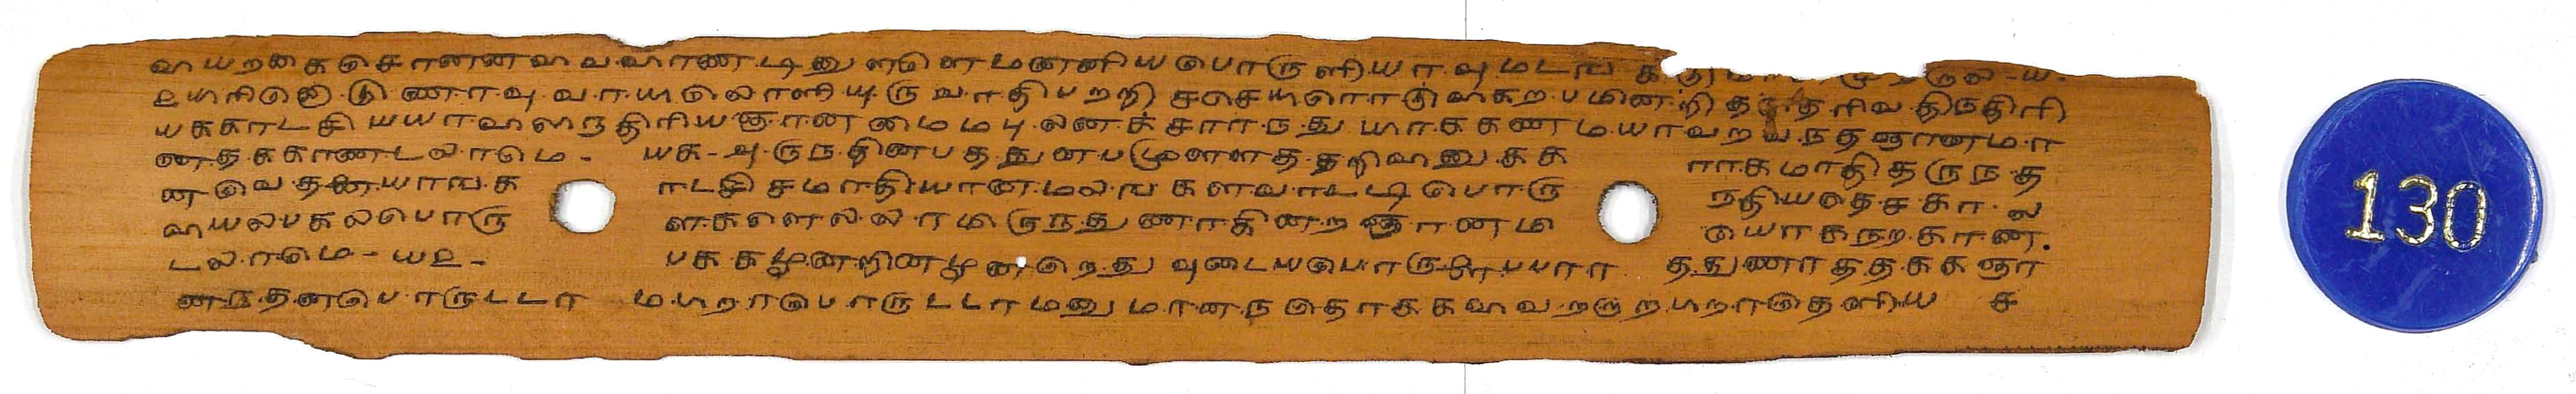 வயறகைசொனனவவவாணடினுளளெமனனியபொருளியாவுமடங
உயிரினொடுணாவுவாயிலொளியுருவாதிபறறி சசெயிரொடுவிகறபமினறி தெரிவதிநதிரி
யககாடசியயாவிளநதிரியஞானமைமபுலனகசாரநது யாககணமயாவறவநதஞானமா
னதககாணடலாமெ - யக - அருநதினபததுனபமுளளததறிவினுகக ராகமாதிதருநத
னவெதனையாங க ாடசி சமாதியானமலங களவாடடிபொரு நதியதெசகால
வியலபகலபொரு ளகளெலலாமிருநதுணாகினறஞானம யொகநறகாண
டலாமெ - யஉ - பககமூனறினமூனறெதுவுடையபொருளைபபார ததுணாததககஞா
னநதனபொருடடா மபிறாபொருடடாமனுமானநதொககவவறறறபிறாதெளிய ச
130